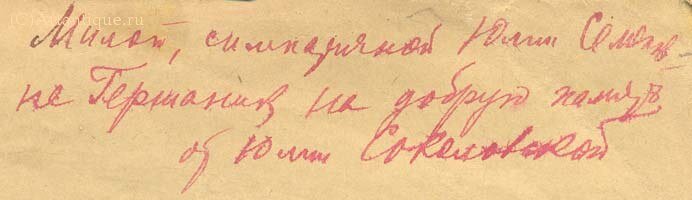 (C)Auentique.ru
Милой, симпатичной Юлии Семеновне
Германик на добрую память
от Юлии Соколовской